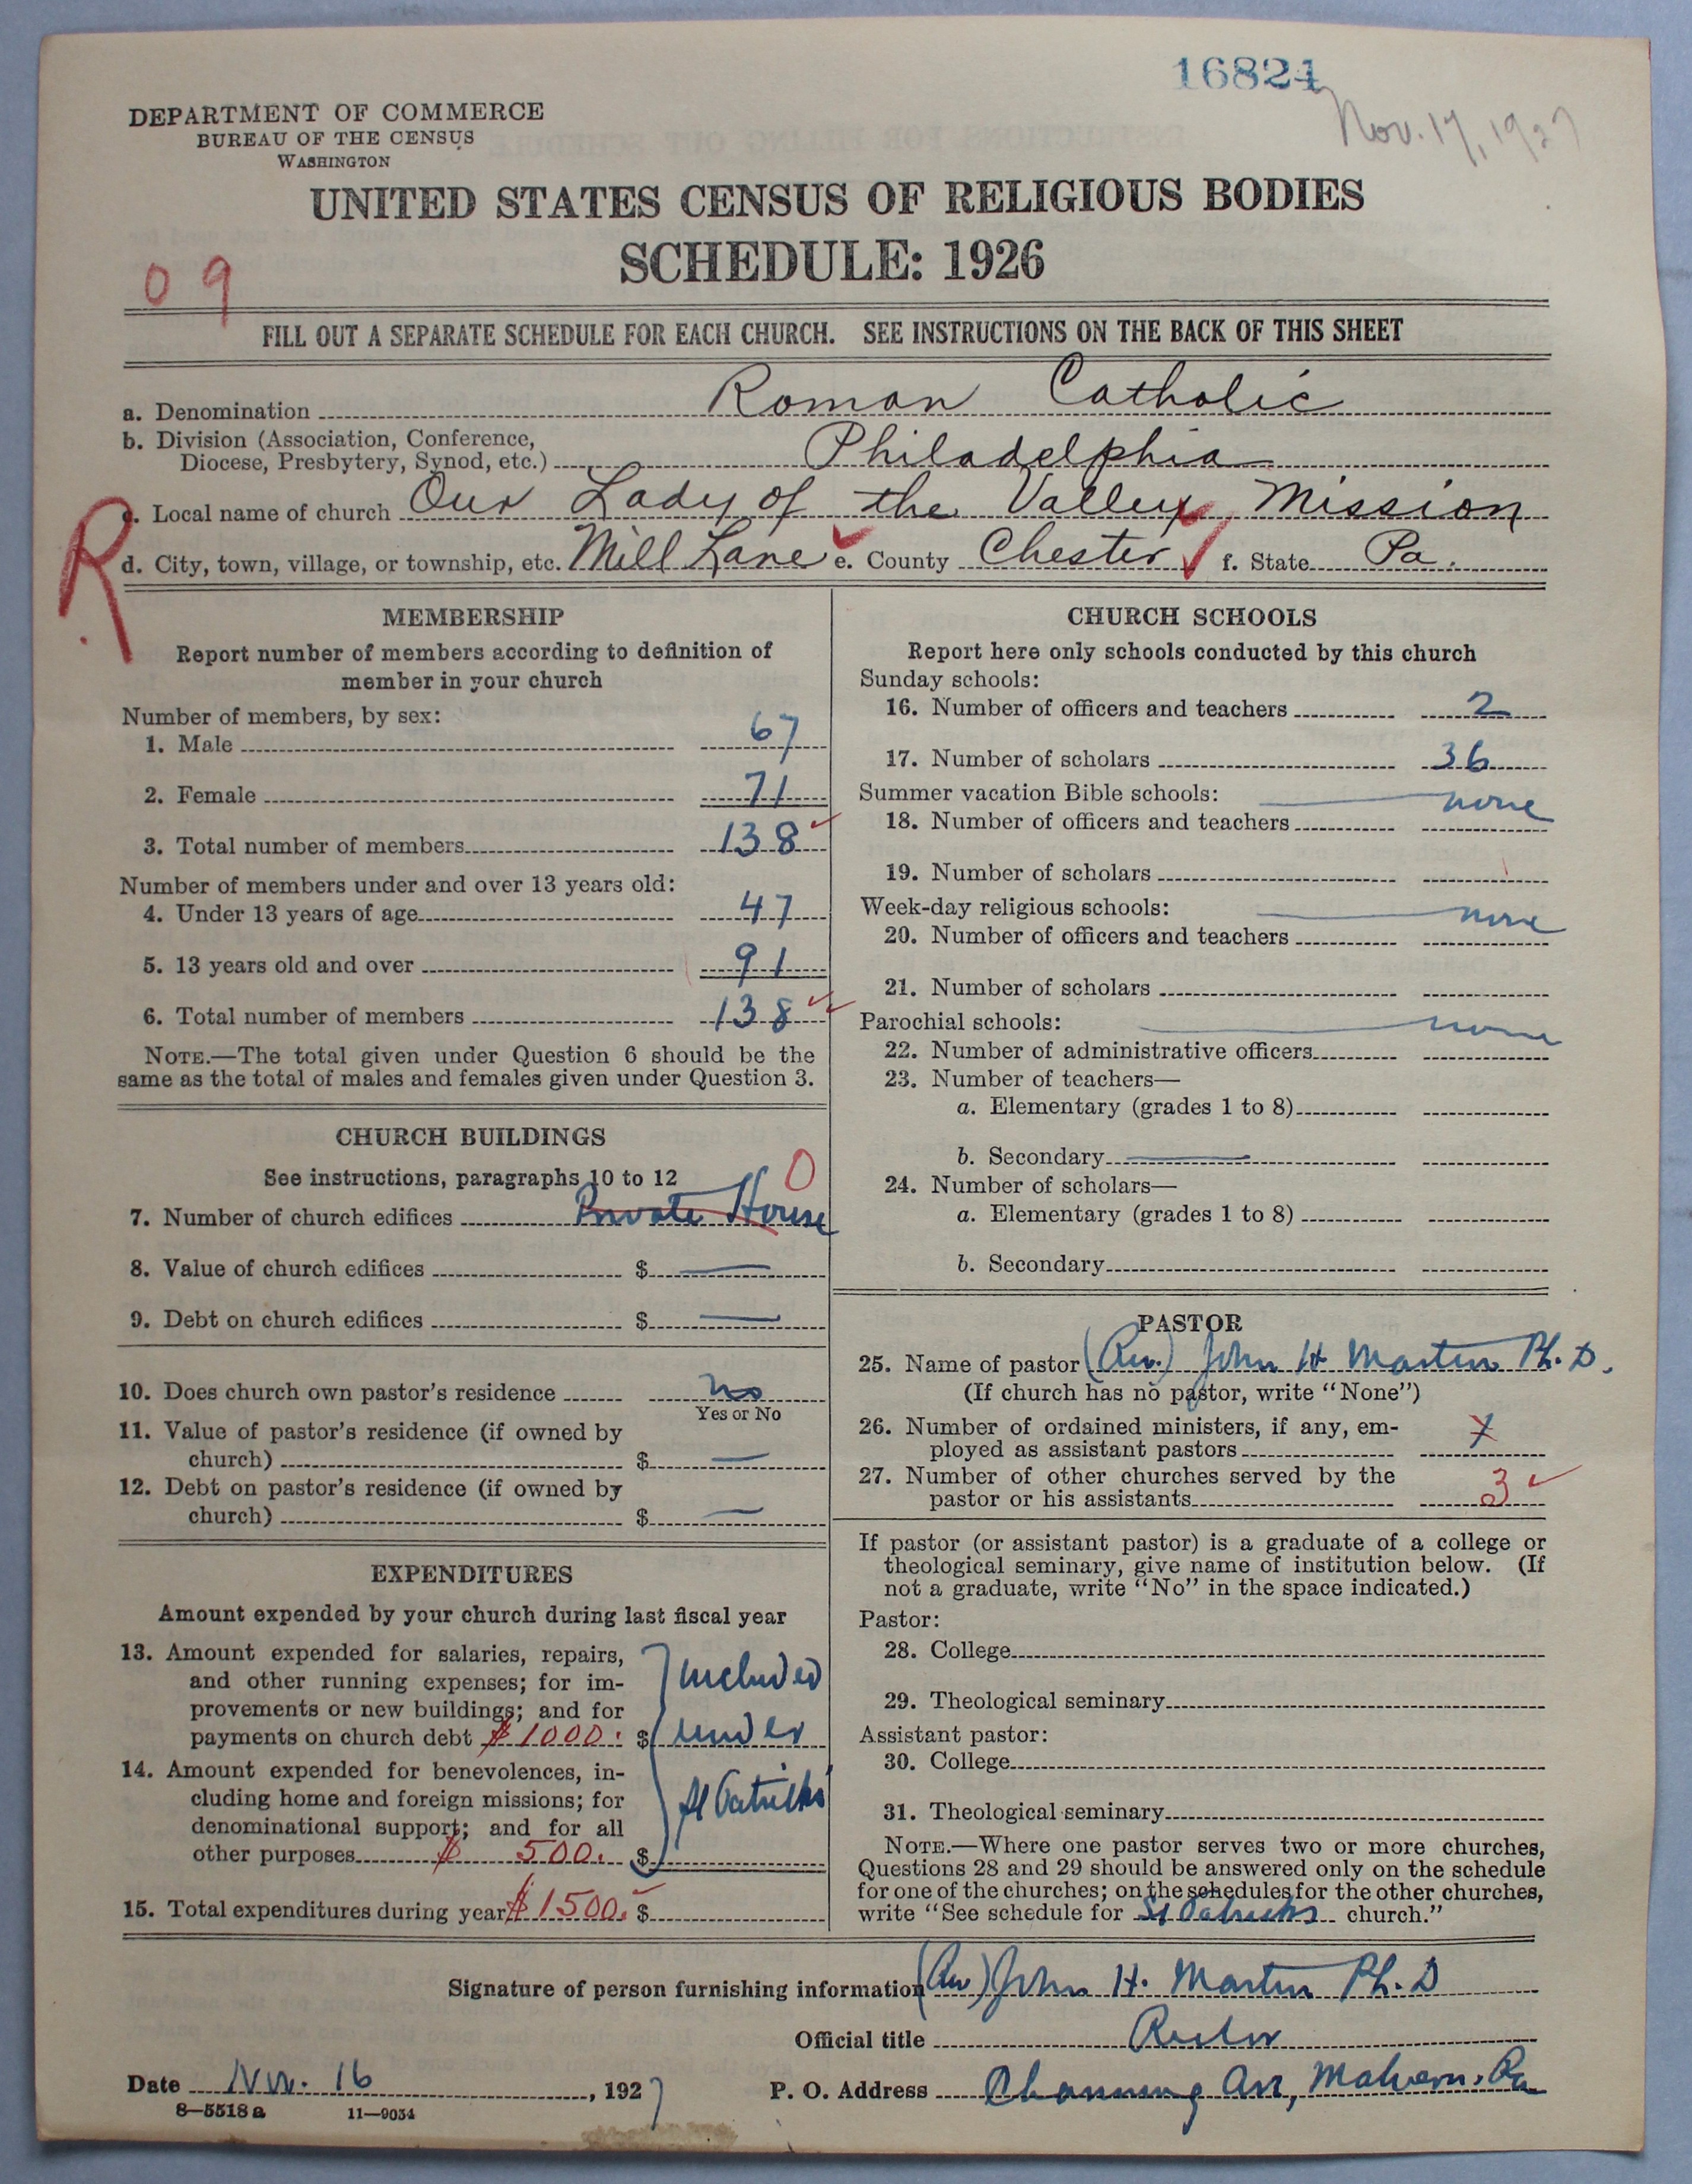 16824
Nov. 17, 1927
DEPARTMENT OF COMMERCE
BUREAU OF THE CENSUS
WASHINGTON
UNITED STATES CENSUS OF RELIGIOUS BODIES
SCHEDULE: 1926
09
FILL OUT A SEPARATE SCHEDULE FOR EACH CHURCH. SEE INSTRUCTIONS ON THE BACK OF THIS SHEET
a. Denomination Roman Catholic
b. Division (Association, Conference,
Diocese, Presbytery, Synod, etc.) Philadelphia
R
c. Local name of church Our Lady of the Valley, Mission
d. City, town, village, or township, etc. Mill Lane e. County Chester f. State Pa.
MEMBERSHIP
Report number of members according to definition of
member in your church
Number of members, by sex:
1. Male 67
2. Female 71
3. Total number of members 138
Number of members under and over 13 years old:
4. Under 13 years of age 47
5. 13 years old and over 91
6. Total number of members 138
NOTE.—The total given under Question 6 should be the
same as the total of males and females given under Question 3.
CHURCH BUILDINGS
See instructions, paragraphs 10 to 12 0
7. Number of church edifices Private House
8. Value of church edifices $ —
9. Debt on church edifices $ —
10. Does church own pastor's residence no
Yes or No
11. Value of pastor's residence (if owned by
church) $ —
12. Debt on pastor's residence (if owned by
church) $ —
EXPENDITURES
Amount expended by your church during last fiscal year
13. Amount expended for salaries, repairs,
and other running expenses; for im-
provements or new buildings; and for
payments on church debt $1000. $
included
under
St Patricks
14. Amount expended for benevolences, in-
cluding home and foreign missions; for
denominational support; and for all
other purposes $ 500. $
15. Total expenditures during year $1500. $
CHURCH SCHOOLS
Report here only schools conducted by this church
Sunday schools:
16. Number of officers and teachers 2
17. Number of scholars 36
Summer vacation Bible schools: none
18. Number of officers and teachers
19. Number of scholars
Week-day religious schools: none
20. Number of officers and teachers
21. Number of scholars
Parochial schools: none
22. Number of administrative officers
23. Number of teachers—
a. Elementary (grades 1 to 8)
b. Secondary
24. Number of scholars—
a. Elementary (grades 1 to 8)
b. Secondary
PASTOR
25. Name of pastor (Rev.) John H Martin Ph. D.
(If church has no pastor, write "None")
26. Number of ordained ministers, if any, em-
ployed as assistant pastors
27. Number of other churches served by the
pastor or his assistants 3
If pastor (or assistant pastor) is a graduate of a college or
theological seminary, give name of institution below. (If
not a graduate, write "No" in the space indicated.)
Pastor:
28. College
29. Theological seminary
Assistant pastor:
30. College
31. Theological seminary
NOTE.—Where one pastor serves two or more churches,
Questions 28 and 29 should be answered only on the schedule
for one of the churches; on the schedules for the other churches,
write "See schedule for St Patricks church."
Signature of person furnishing information (Rev) John H. Martin Ph. D
Official title Rector
Date Nov. 16, 1927
P. O. Address Channing Ave, Malvern, Pa
8—5518 a 11—9054